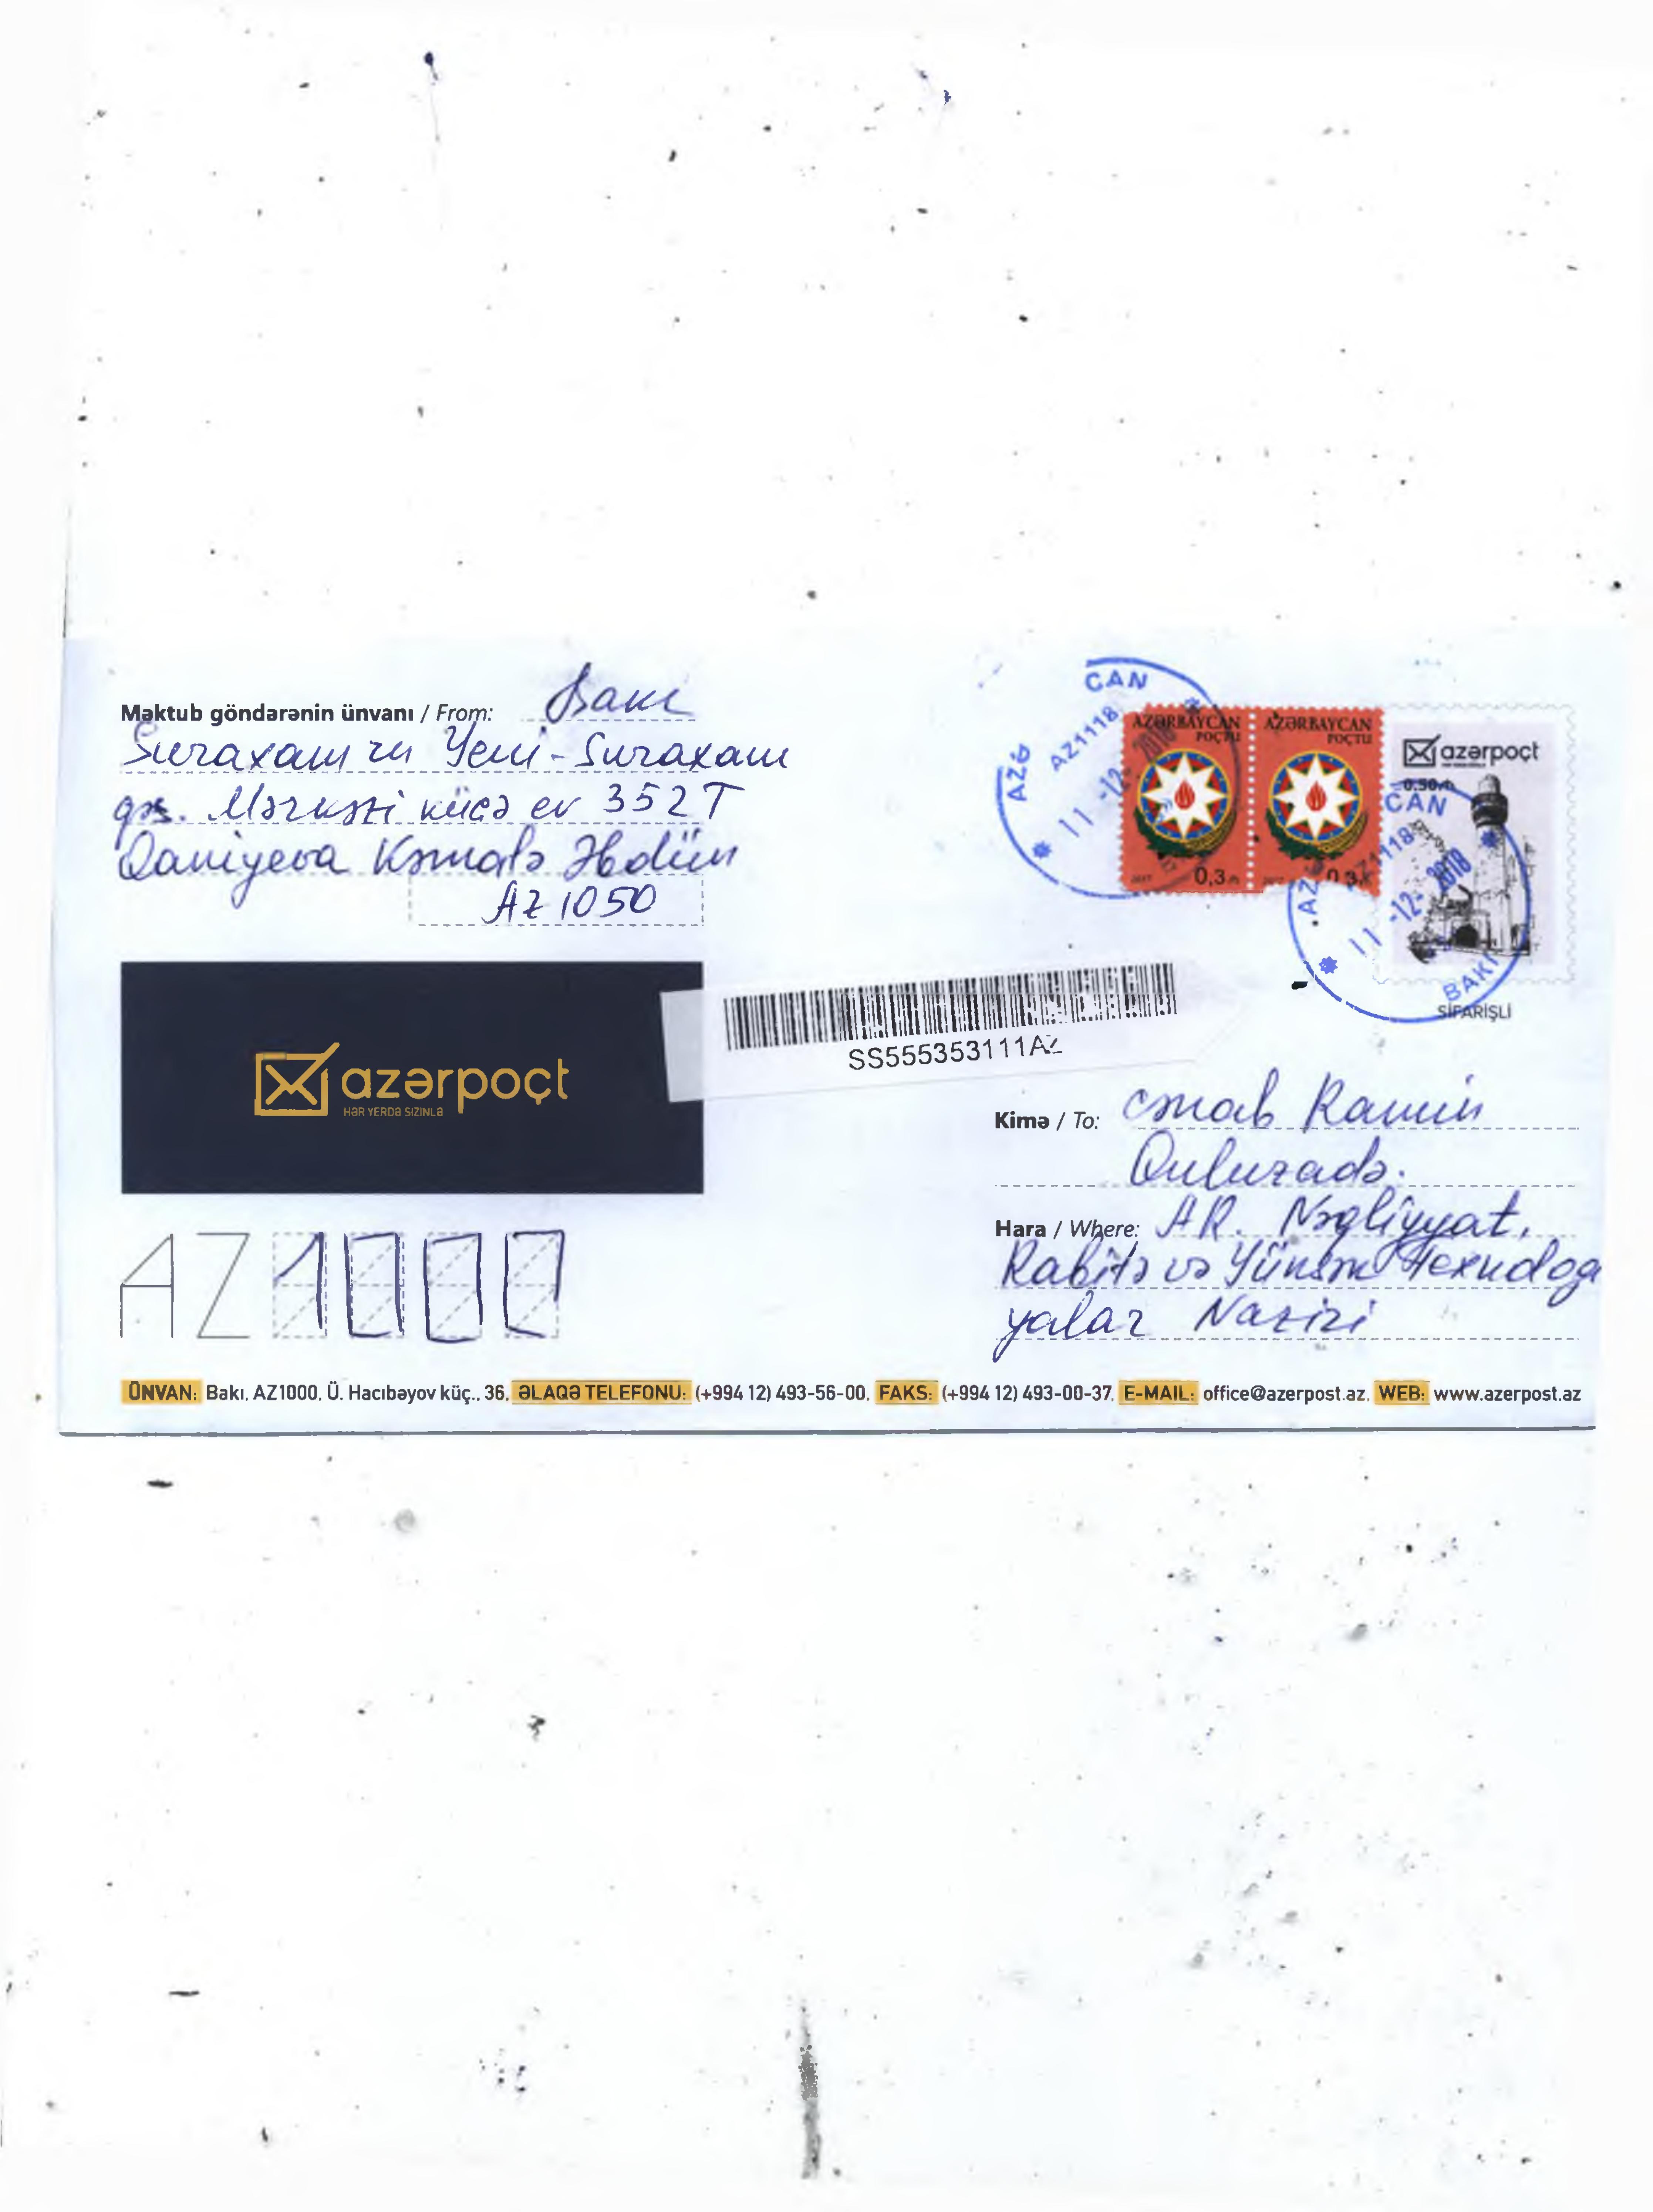 Məktub göndərənin ünvanı / From: Bakı
Suraxanı rn Yeni-Suraxanı
qəs. Mərkəzi küçə ev 352T
Qaniyeva Kəmalə Əbdün
AZ1050
CAN
AZ1118
11-12-2018
AZƏRBAYCAN
POÇTU
0,3₼
AZƏRBAYCAN
POÇTU
0,3₼
azərpoçt
0.50₼
CAN
AZ1118
11-12-2018
BAKI
SİFARİŞLİ
azərpoçt
HƏR YERDƏ SİZİNLƏ
SS555353111AZ
Kimə / To: cənab Ramin
Quluzadə.
Hara / Where: AR. Nəqliyyat,
Rabitə və Yüksək Texnologi
yalar Naziri
AZ1000
ÜNVAN: Bakı, AZ1000, Ü. Hacıbəyov küç., 36, ƏLAQƏ TELEFONU: (+994 12) 493-56-00, FAKS: (+994 12) 493-00-37, E-MAIL: office@azerpost.az, WEB: www.azerpost.az